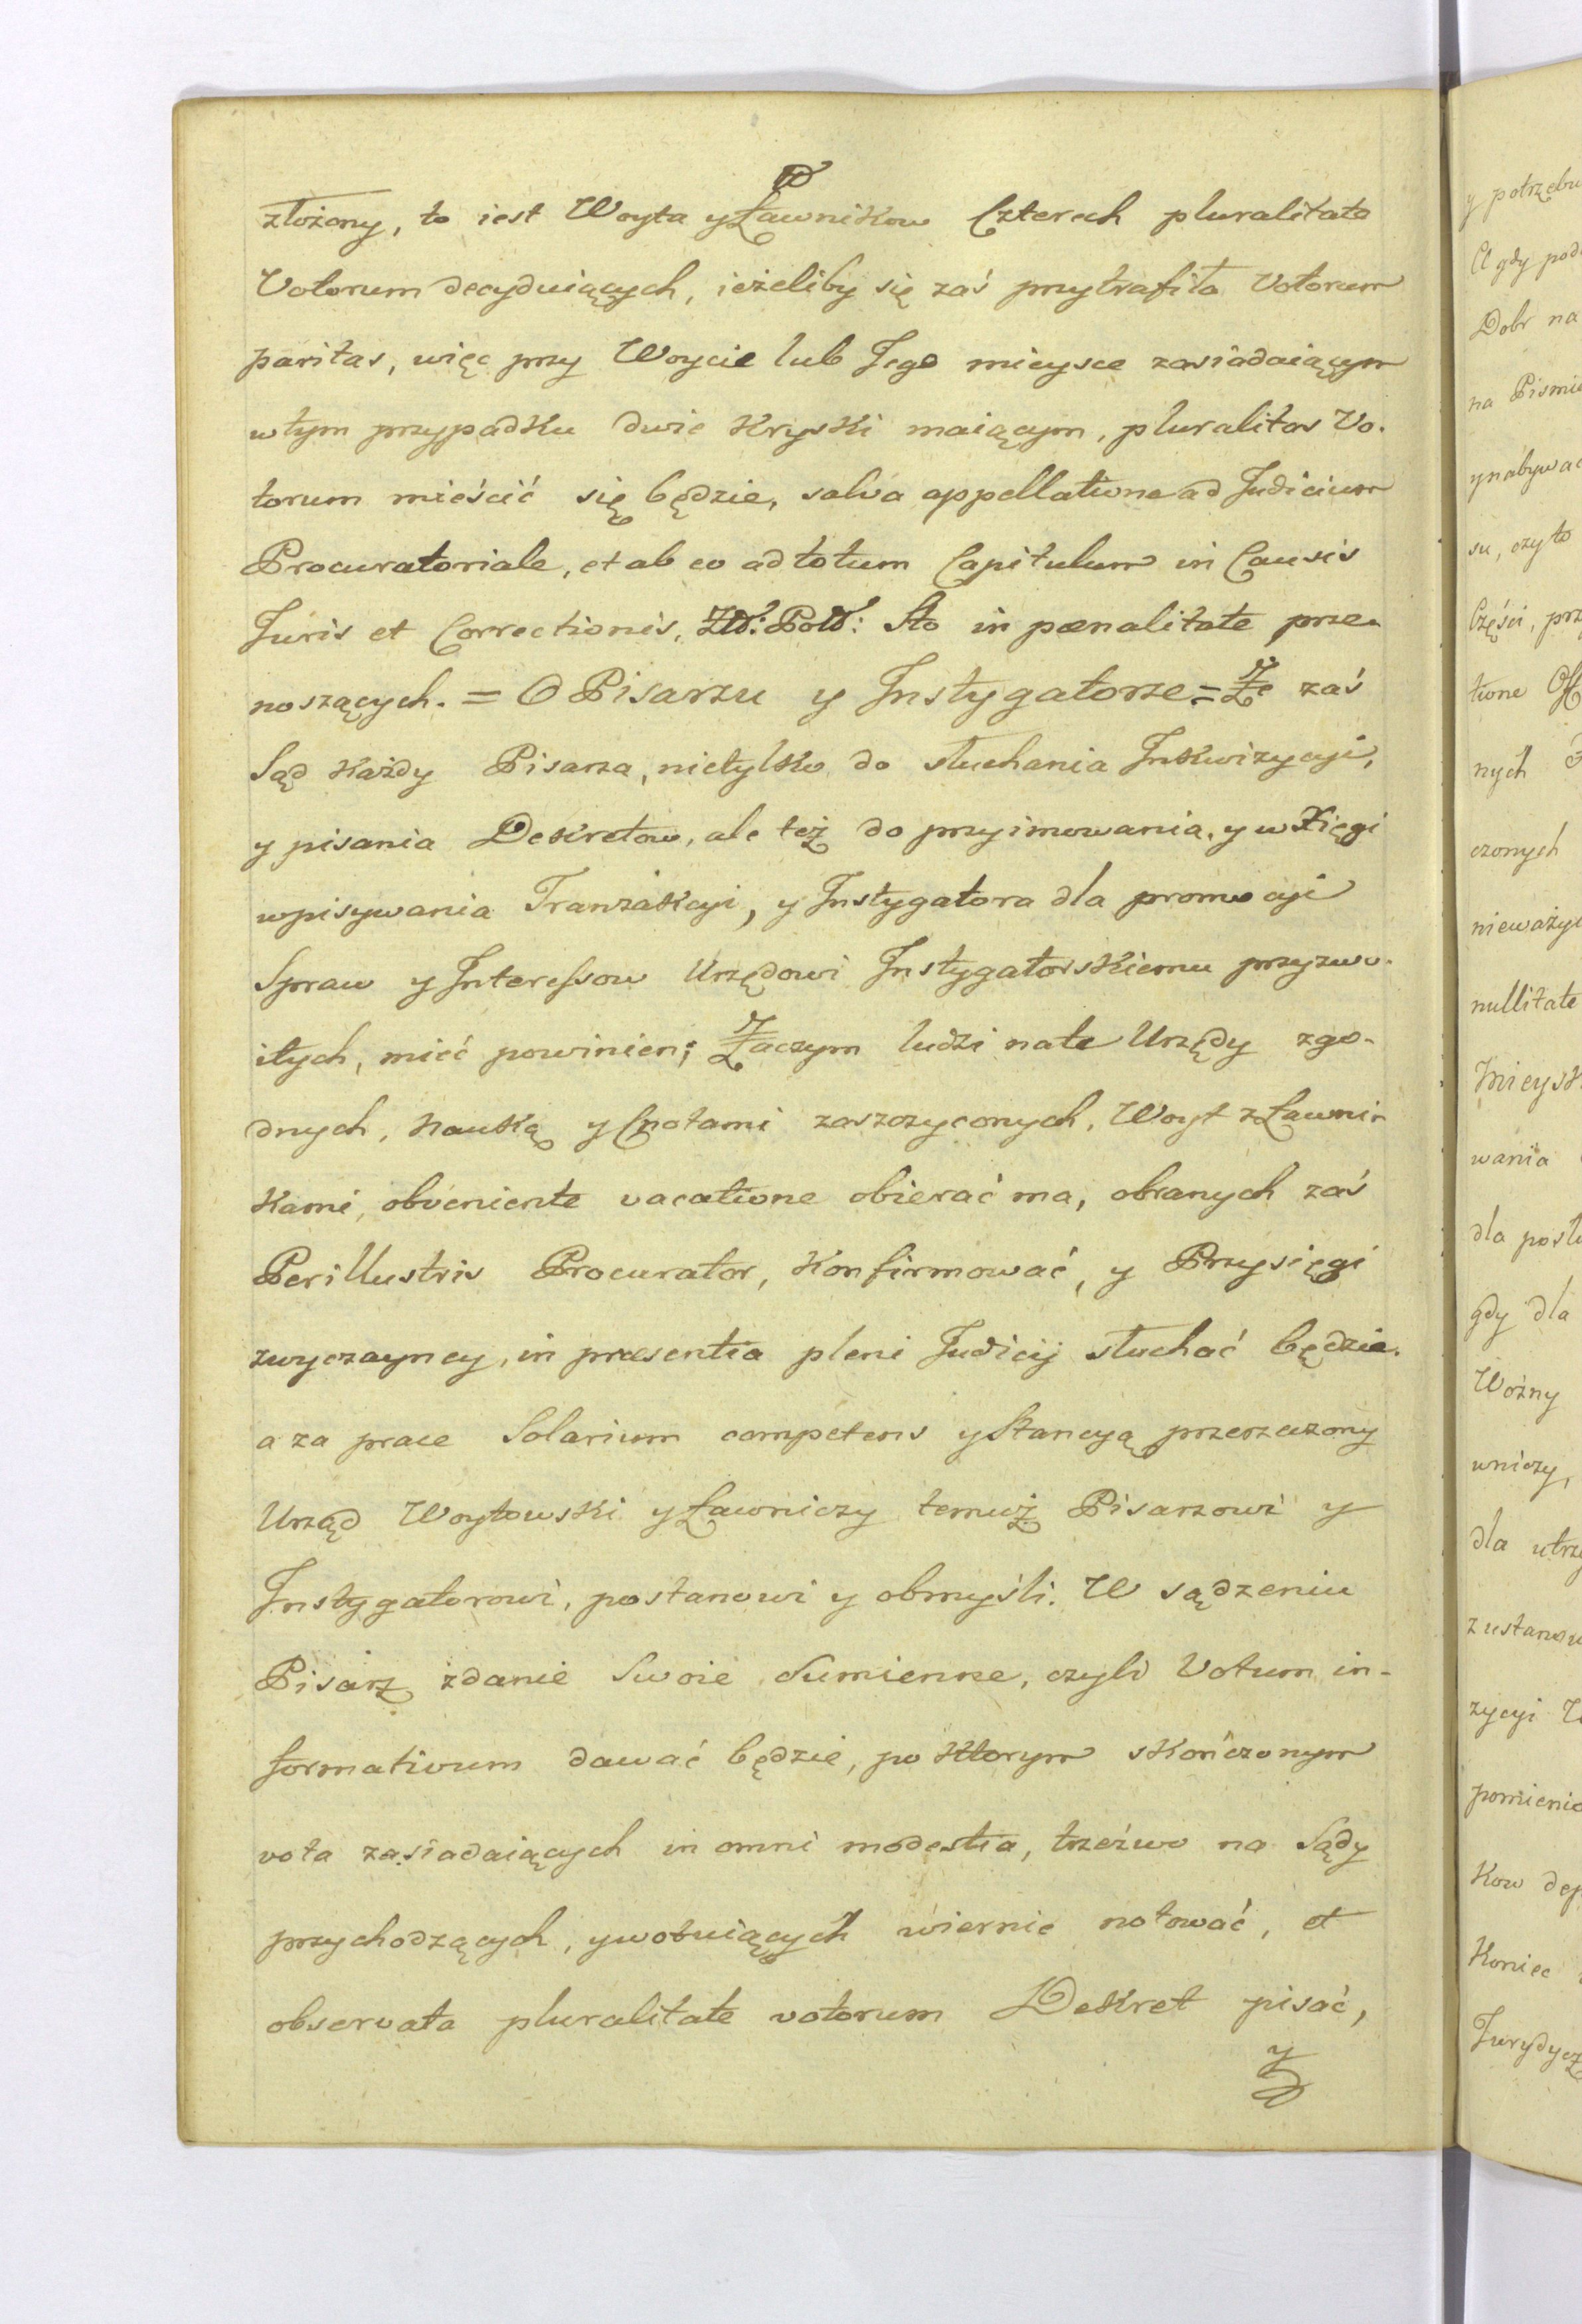 złożony, to iest Woyta y Ławnikow Czterech pluralitate
Votorum decyduiących, ieżeliby się zaś przytrafiła Votorum
paritas, więc przy Woycie lub Jego mieysce zasiadaiącym
w tym przypadku dwie Kryski maiącym, pluralitas Vo-
torum mieścić się będzie, salva appellatione ad Judicium
Procuratoriale, et ab eo ad totum Capitulum in Causis
Juris et Correctionis, Sto in pœnalitate prze-
noszących. = O Pisarzu y Instygatorze = Że zaś
Sąd Każdy Pisarza, nietylko do słuchania Inkwizycyi,
y pisania Dekretow, ale też do przyimowania, y w Xięgi
wpisywania Tranzakcyi, y Instygatora dla promocyi
Spraw y Interessow Urzędowi Instygatorskiemu przyzwo-
itych, mieć powinien; Zaczym ludzi na te Urzędy zgo-
dnych, Nauką y Cnotami zaszczyconych, Woyt z Ławni-
kami, obveniente vacatione obierać ma, obranych zaś
Perillustris Procurator, Konfirmować, y Przysięgi
zwyczayney, in præsentia pleni Judicij słuchać będzie.
a za prace Solarium competens y Stancyą przerzeczony
Urząd Woytowski y Ławniczy temuż Pisarzowi y
Instygatorowi, postanowi y obmyśli. W sądzeniu
Pisarz zdanie Swoie Sumienne, czyli Votum in-
formativum dawać będzie, po Ktorym skończonym
vota zasiadaiących in omni modestia, trzeźwo na Sądy
przychodzących, y wotuiących wiernie notować, et
observata pluralitate votorum Dekret pisać,
y
y potrzebu
A gdy pod
Dobr na
na Pismie
y nabywać
su, czy to
Części, prz
tione
nych
czonych
nieważy
nullitate
Mieysk
wania
dla posłu
gdy dla
Woźny
wniczy,
dla utrzy
z ustanow
zycyi
pomienio
Kow dep
Koniec
Jurydycz